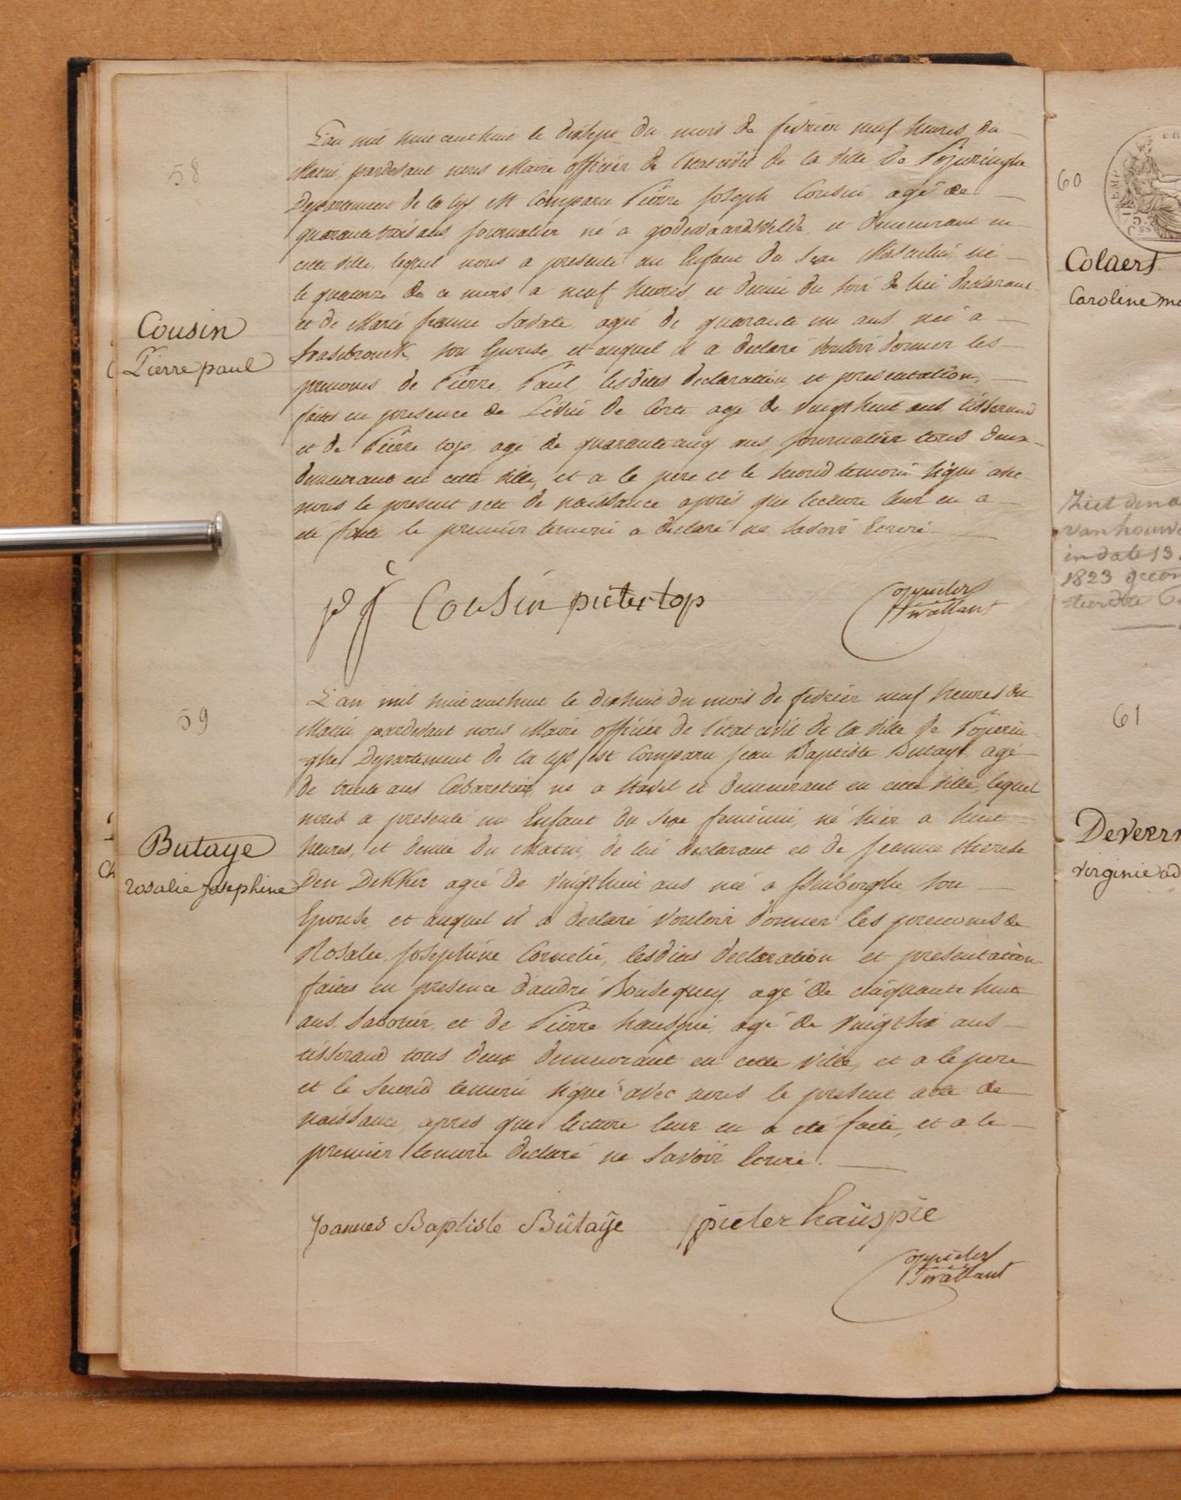 58
Cousin
Pierre paul
L'an mil huit cent huit le dixsept du mois de fevrier neuf heures du
Matin pardevant nous Maire officier de l'etat civil de la ville de Poperinghe
Departement de la Lys est Comparu Pierre Joseph Cousin agé de
quarante trois ans journalier né a godewaardsvelde et demeurant en
cette ville, lequel nous a presenté un Enfant du Sexe Masculin né
le quatorze de ce mois a neuf heures et demie du soir de lui declarant
et de Marie jeanne agée de quarante un ans née a
hasebrouck son Epouse, et auquel il a declaré vouloir donner les
prenoms de Pierre Paul lesdites declaration et presentation
faites en presence de de Corte agé de vingt huit ans tisserand
et de Pierre top agé de quarante cinq ans journalier tous deux
demeurant en cette ville, et a le pere et le second temoin signé avec
nous le present acte de naissance après que lecture leur en a
été faite le premier temoin a declaré ne savoir Ecrire
p j Cousin pieter top
59
Butaye
rosalie josephine
L'an mil huit cent huit le dixhuit du mois de fevrier neuf heures du
Matin pardevant nous Maire officier de l'état civil de la ville de Poperin-
ghe Departement de la Lys est Comparu jean Baptiste Butaye agé
de trente ans Cabaretier né a Stavel et demeurant en cette ville, lequel
nous a presenté un Enfant du Sexe feminin, né hier a huit
heures, et demie du Matin, de lui declarant et de jeanne therese
Den Dekker agée de vingthuit ans née a son
Epouse, et auquel il a declaré vouloir donner les prenoms de
Rosalie Josephine Cornelie, lesdites declaration et presentation
faites en presence d'andré Bousequey agé de cinquante huit
ans Sabotier et de Pierre hauspie agé de vingt six ans
tisserand tous deux demeurant en cette ville, et a le pere
et le second temoin signé avec nous le present acte de
naissance, apres que lecture leur en a été faite, et a le
premier temoin declaré ne savoir Ecrire.
Joannes Baptiste Butaÿe pieter haüspie
60
Colaert
Caroline
1823
61
Virginie